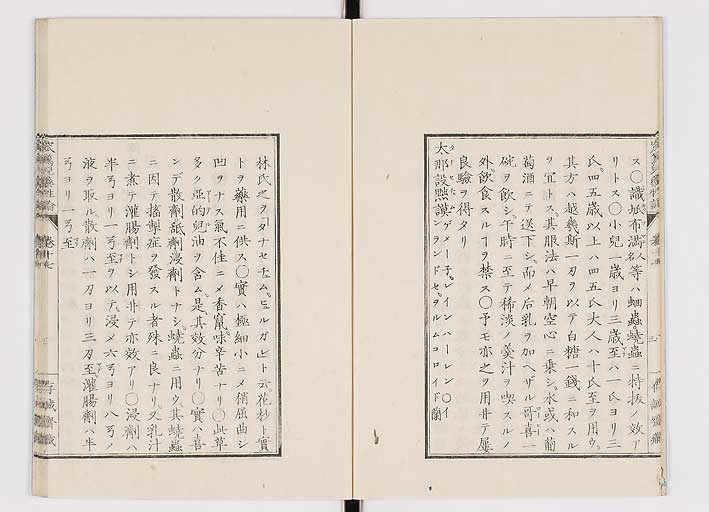 ス○識坻布満人名等ハ蛔蟲蟯蟲ニ特抜ノ效ア
リトス○小兒一歳ヨリ三歳至ハ一氏ヨリ三
氏四五歳以上ハ四五氏大人ハ十氏至ヲ用ウ
其方ハ越幾斯一刃ヲ以テ白糖一錢ニ和スル
ヲ宜トス其服法ハ早朝空心ニ乗シ水或ハ葡
萄酒ニテ送下シ而メ后乳ヲ加ヘザル哥喜一
碗ヲ飲シ午時ニ至テ稀淡ノ羹汁ヲ喫スルノ
外飲食スルヿヲ禁ス○予モ亦之ヲ用井テ屢
良驗ヲ得タリ
太那設㸃謨 ゲメー子レインハーレン○イ ンランドセヲルムコロイド蘭
林氏之ヲタナセチュムヒュルガレト云花杪ト實
トヲ藥用ニ供ス○實ハ極細小ニメ稍屈曲シ
凹ヲナス氣不佳ニメ香竄味辛苦ナリ○此草
多ク亞的兒油ヲ含ム是其效分ナリ○實ハ喜
ンデ散劑舐劑浸劑トナシ蟯蟲ニ用ウ其蟯蟲
ニ因テ搐掣症ヲ發スル者殊ニ良ナリ又乳汁
ニ煮テ灌腸劑トシ用井テ亦效アリ○浸劑ハ
半丂ヨリ一丂至ヲ以テ浸メ六丂ヨリ八丂ノ
液ヲ取ル散劑ハ一刃ヨリ三刃至灌腸劑ハ半
丂ヨリ一丂至
卷十七